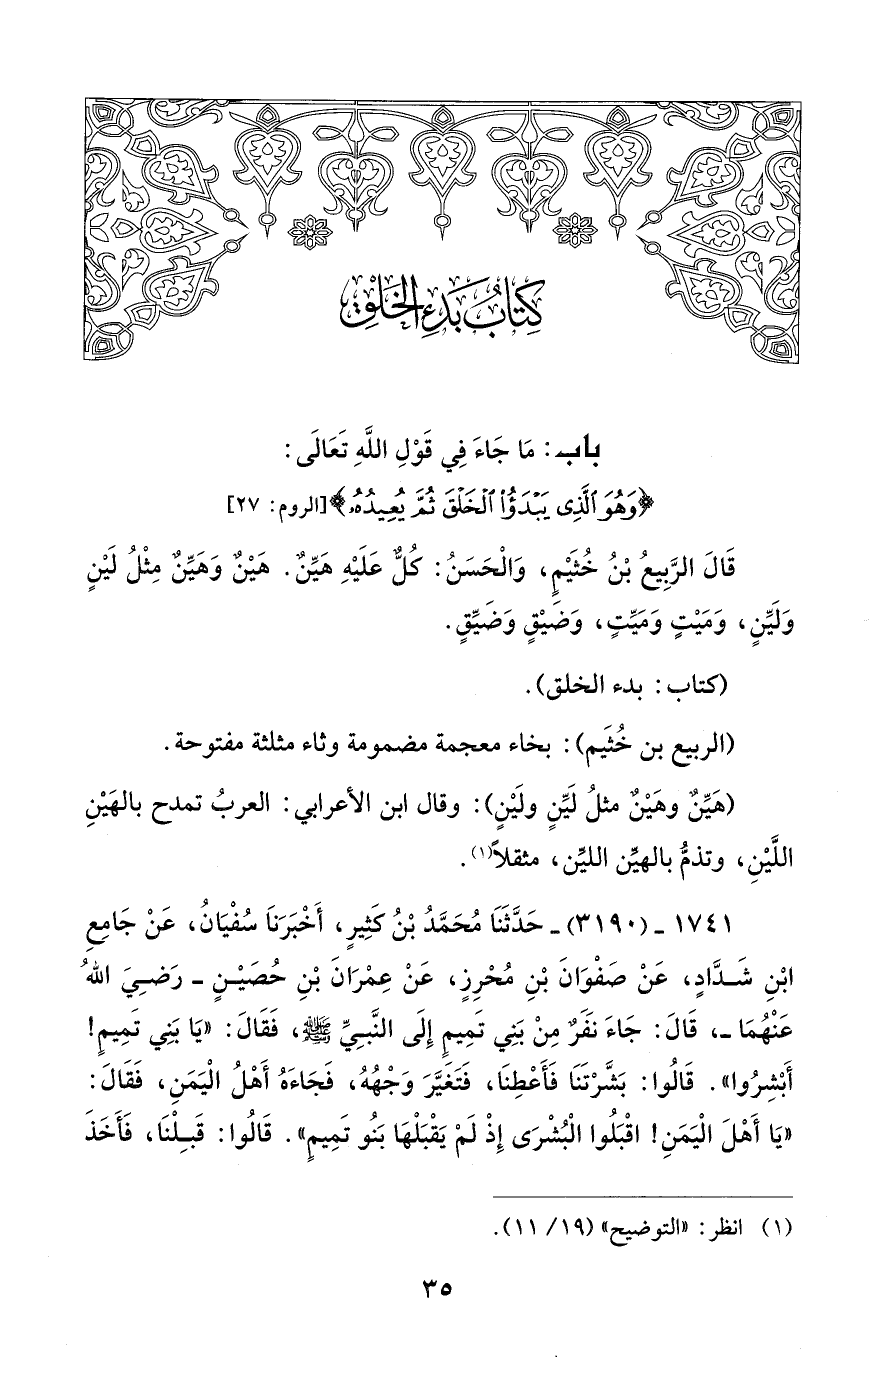 كِتَابُ بَدْءِ الْخَلْقِ
باب: مَا جَاءَ فِي قَوْلِ اللَّهِ تَعَالَى:
﴿وَهُوَ ٱلَّذِى يَبْدَؤُا۟ ٱلْخَلْقَ ثُمَّ يُعِيدُهُۥ﴾[الروم: ٢٧]
قَالَ الرَّبِيعُ بْنُ خُثَيْمٍ، وَالْحَسَنُ: كُلٌّ عَلَيْهِ هَيِّنٌ. هَيْنٌ وَهَيِّنٌ مِثْلُ لَيْنٍ
وَلَيِّنٍ، وَمَيْتٍ وَمَيِّتٍ، وَضَيْقٍ وَضَيِّقٍ.
(كتاب: بدء الخلق).
(الربيع بن خُثَيم): بخاء معجمة مضمومة وثاء مثلثة مفتوحة.
(هَيِّنٌ وهَيْنٌ مثلُ لَيِّنٍ ولَيْنٍ): وقال ابن الأعرابي: العربُ تمدح بالهَيْنِ
اللَّيْنِ، وتذمُّ بالهيِّن الليِّن، مثقلاً(١).
١٧٤١ ـ (٣١٩٠) ـ حَدَّثَنَا مُحَمَّدُ بْنُ كَثِيرٍ، أَخْبَرَنَا سُفْيَانُ، عَنْ جَامِعِ
ابْنِ شَدَّادٍ، عَنْ صَفْوَانَ بْنِ مُحْرِزٍ، عَنْ عِمْرَانَ بْنِ حُصَيْنٍ ـ رَضِيَ اللهُ
عَنْهُمَا ـ، قَالَ: جَاءَ نَفَرٌ مِنْ بَنِي تَمِيمٍ إِلَى النَّبِيِّ ﷺ، فَقَالَ: «يَا بَنِي تَمِيمٍ!
أَبْشِرُوا». قَالُوا: بَشَّرْتَنَا فَأَعْطِنَا، فَتَغَيَّرَ وَجْهُهُ، فَجَاءَهُ أَهْلُ الْيَمَنِ، فَقَالَ:
«يَا أَهْلَ الْيَمَنِ! اقْبَلُوا الْبُشْرَى إِذْ لَمْ يَقْبَلْهَا بَنُو تَمِيمٍ». قَالُوا: قَبِلْنَا، فَأَخَذَ
(١) انظر: «التوضيح» (١٩/ ١١).
٣٥